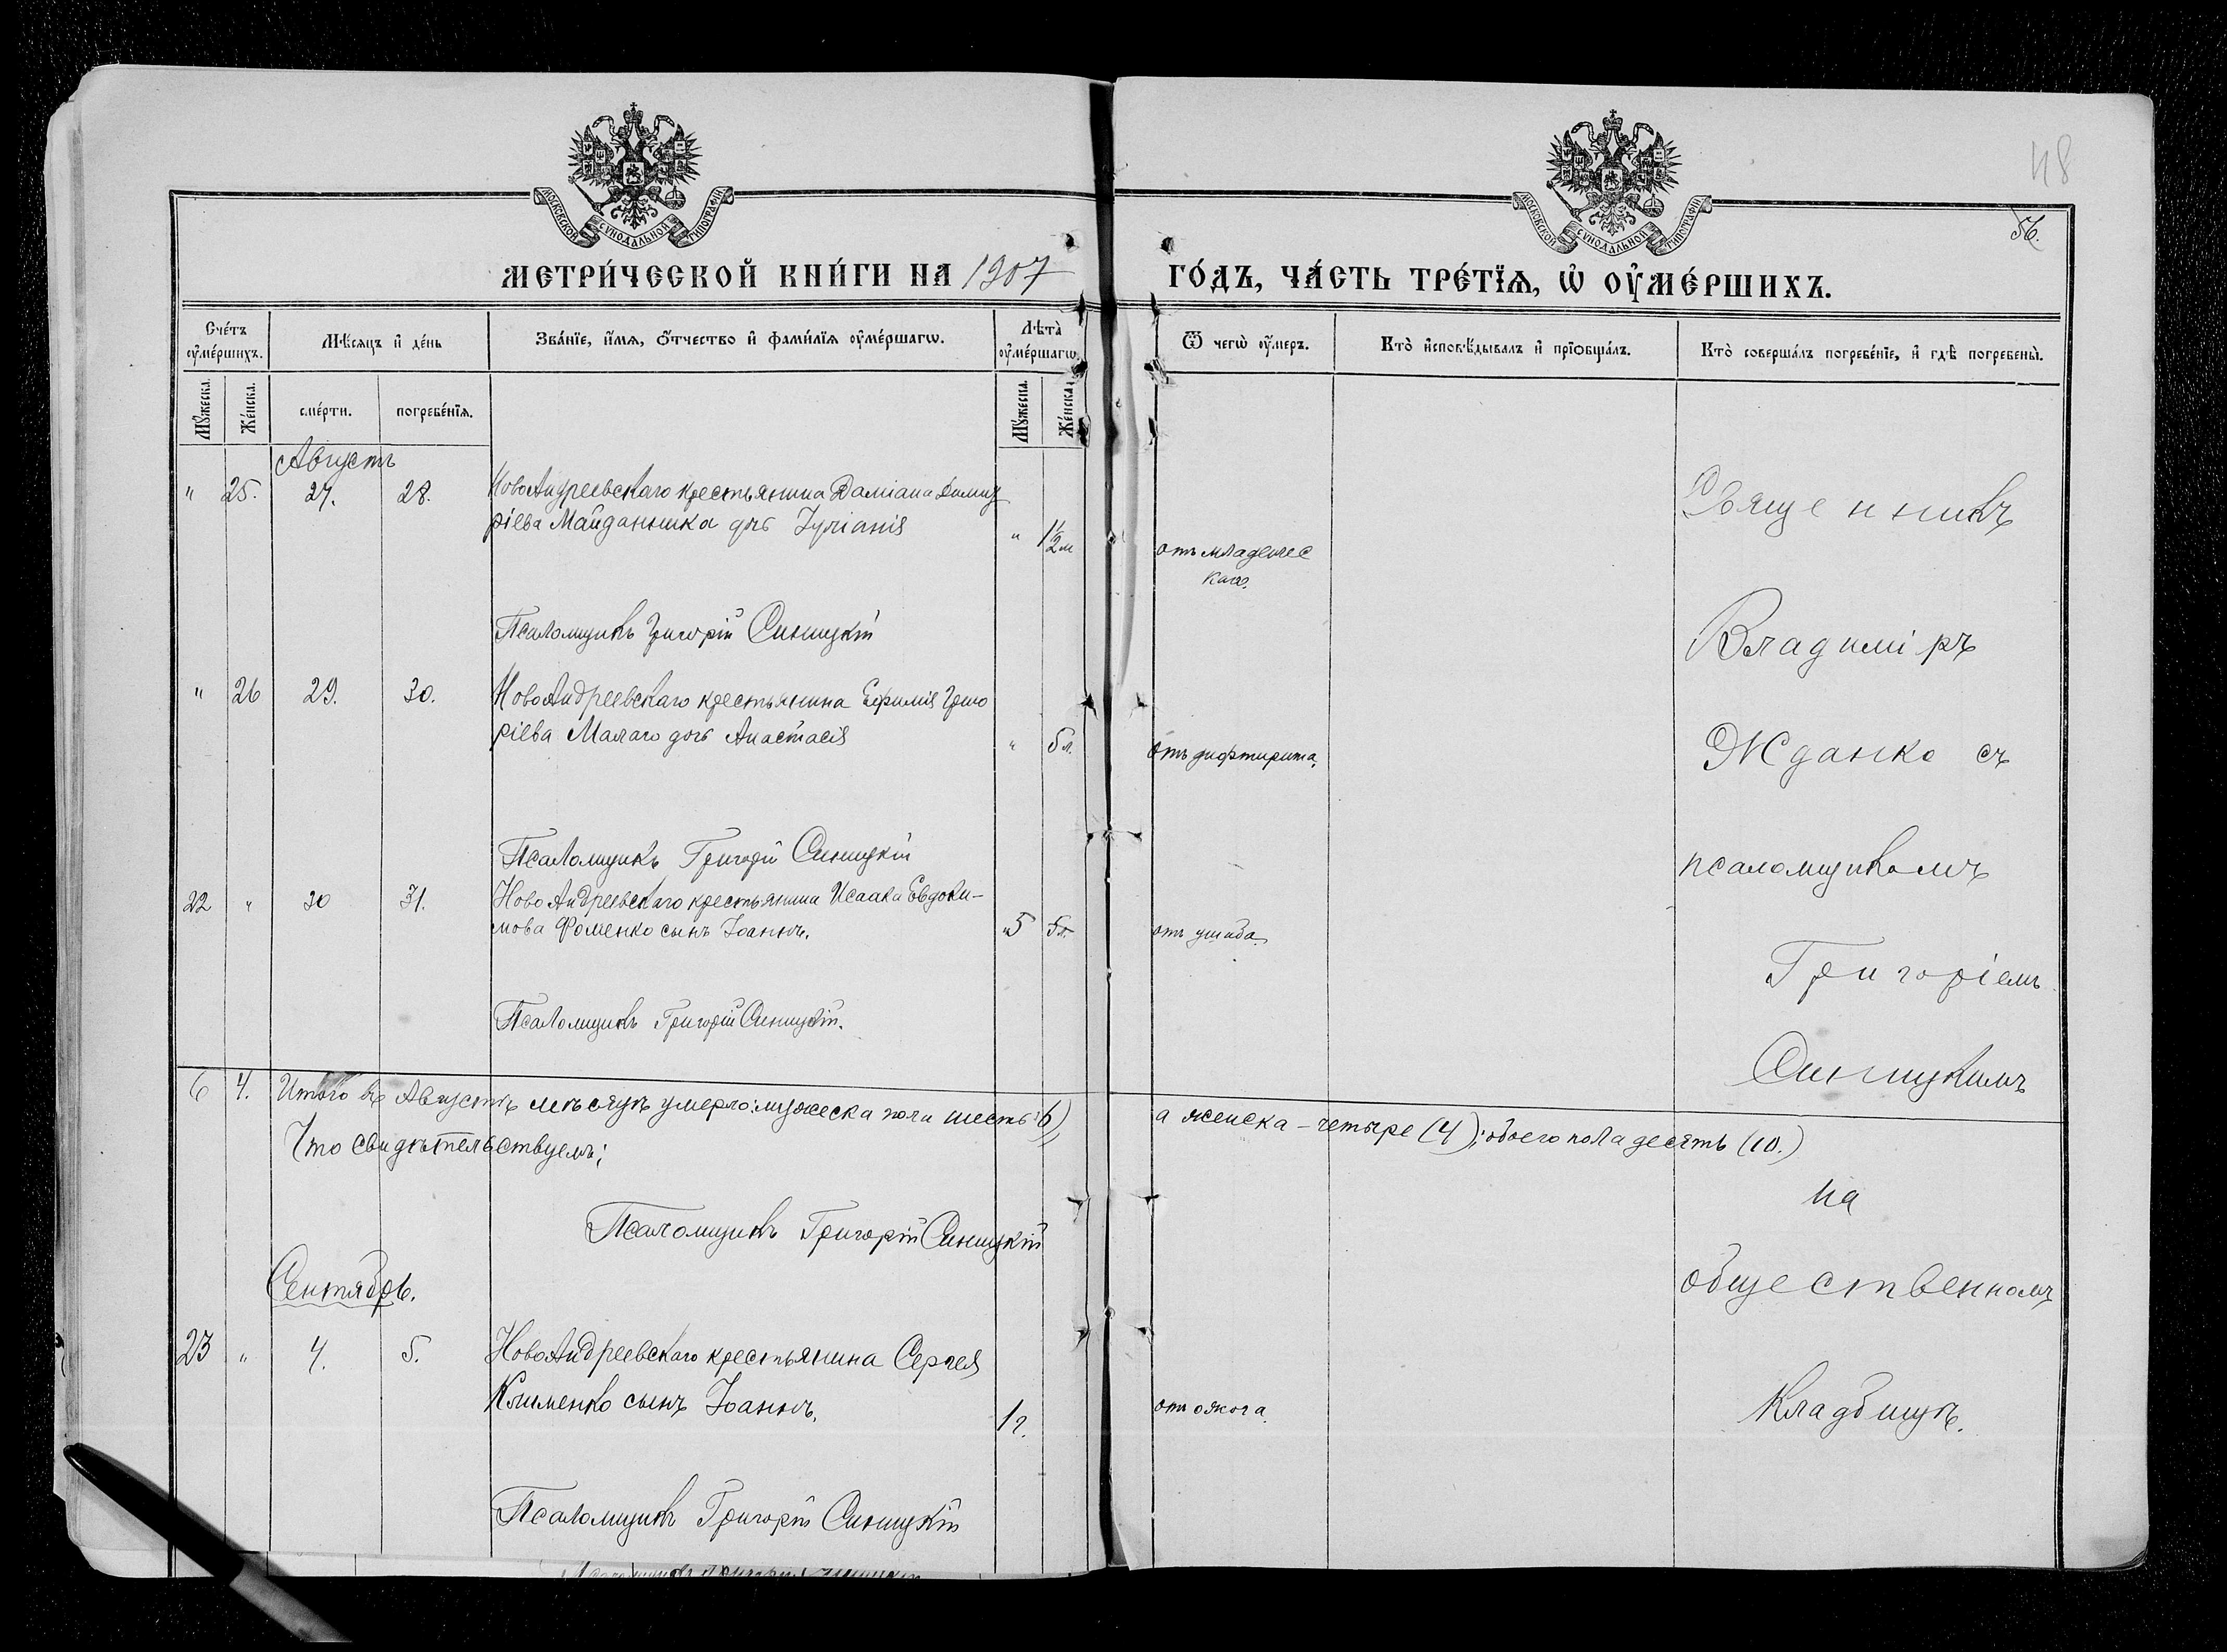 48
56.
МОСКОВСКОЙ СѴНОДАЛЬНОЙ ТИПОГРАФІИ
МОСКОВСКОЙ СѴНОДАЛЬНОЙ ТИПОГРАФІИ
МЕТРИ́ЧЕСКОЙ КНИ́ГИ НА 1907 ГО́ДЪ, ЧА́СТЬ ТРЕ́ТЇѦ, Ѡ҆ ОУ҆МЕ́РШИХЪ.
Сче́тъ оу҆ме́ршихъ.
Мѣ́сяцъ и҆ де́нь
Зва́нїе, и҆́мѧ, ѻ҆́тчество и҆ фами́лїѧ оу҆ме́ршагѡ.
Лѣта̀ оу҆ме́ршагѡ.
Ѿ чегѡ̀ оу҆́меръ.
Кто̀ и҆сповѣ́дывалъ и҆ прїѡбща́лъ.
Кто̀ соверша́лъ погребе́нїе, и҆ гдѣ̀ погребены̀.
Мꙋ́жеска.
Же́нска.
сме́рти.
погребе́нїѧ.
Мꙋ́жеска.
Же́нска.
Августъ
" 25. 27. 28. НовоАндреевскаго крестьянина Даміана Димит
ріева Майданника дочь Іуліанія " 1½ м отъ младенчес
каго.
Священникъ
Псаломщикъ Григорій Синицкій
Владиміръ
" 26 29. 30. НовоАндреевскаго крестьянина Ефимія Григо
ріева Малаго дочь Анастасія " 5 л. отъ дифтирита.
Жданко съ
Псаломщикъ Григорій Синицкій
псаломщикомъ
22 " 30 31. НовоАндреевскаго крестьянина Исаака Евдоки-
мова Фоменко сынъ Іоаннъ. "5 5л. отъ ушиба.
Григоріемъ
Псаломщикъ Григорій Синицкій.
Синицкимъ
6 4. Итого въ Августѣ мѣсяцѣ умерло: мужеска пола шесть (6), а женска – четыре (4); обоего пола десять (10.)
Что свидѣтельствуемъ;
на
Псаломщикъ Григорій Синицкій
Сентябрь.
общественномъ
23 " 4. 5. НовоАндреевскаго крестьянина Сергея
Клименко сынъ Іоаннъ. 1 г. отъ ожога.
Кладбищѣ.
Псаломщикъ Григорій Синицкій